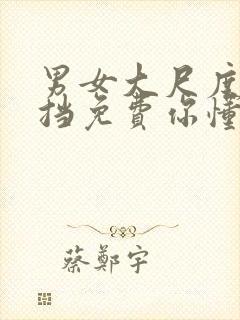 男女大尺度
挡免费你懂
蔡鄭宇